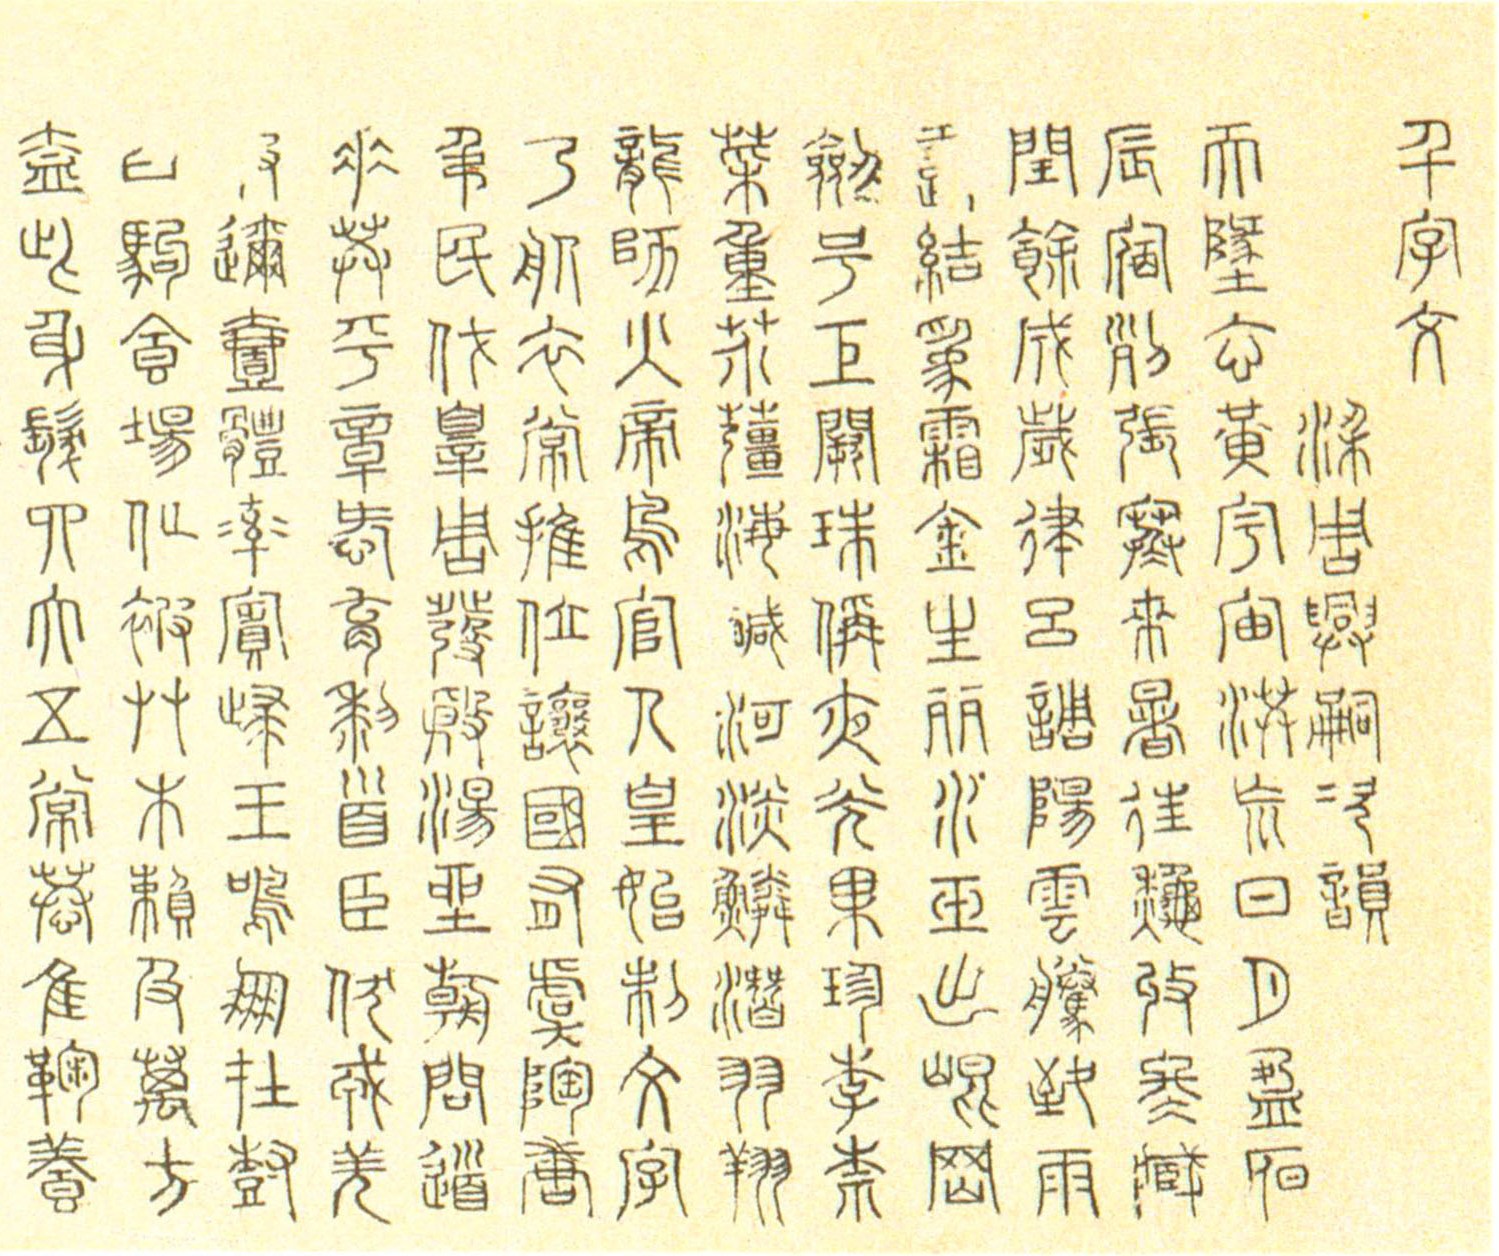 千字文
梁周興嗣次韻
天地玄黃宇宙洪荒日月盈昃
辰宿列張寒來暑往秋收冬藏
閏餘成歲律呂調陽雲騰致雨
結爲霜金生麗水玉出崐岡
劍號巨闕珠稱夜光果珍李柰
菜重芥薑海鹹河淡鱗潛羽翔
龍師火帝鳥官人皇始制文字
乃服衣裳推位讓國有虞陶唐
弔民伐辠周發殷湯坐朝問道
垂拱平章愛育黎首臣伏戎羌
邇壹體率賓歸王鳴鳳在樹
白駒食場化被草木賴及萬方
蓋此身髮四大五常恭惟鞠養